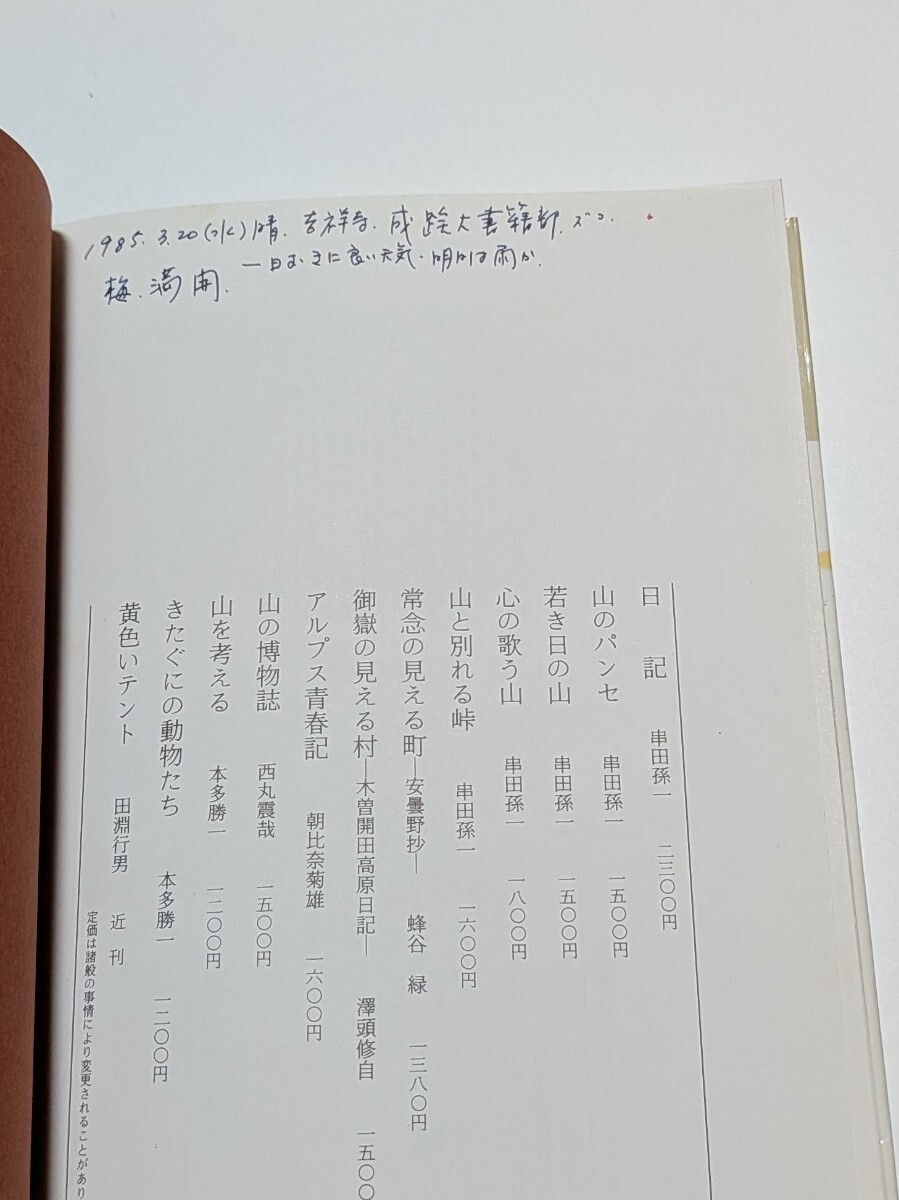 1985. 3. 20 (水) 晴. 吉祥寺. 成蹊大書籍部.
一日まさに良い天気. 明日は雨か.
梅. 満開.
日記 串田孫一 二三〇〇円
山のパンセ 串田孫一 一五〇〇円
若き日の山 串田孫一 一五〇〇円
心の歌う山 串田孫一 一八〇〇円
山と別れる峠 串田孫一 一六〇〇円
常念の見える町―安曇野抄― 蜂谷 緑 一三八〇円
御嶽の見える村―木曽開田高原日記― 澤頭修自 一五〇〇
アルプス青春記 朝比奈菊雄 一六〇〇円
山の博物誌 西丸震哉 一五〇〇円
山を考える 本多勝一 一二〇〇円
きたぐにの動物たち 本多勝一 一二〇〇円
黄色いテント 田淵行男 近刊
定価は諸般の事情により変更されることがあり